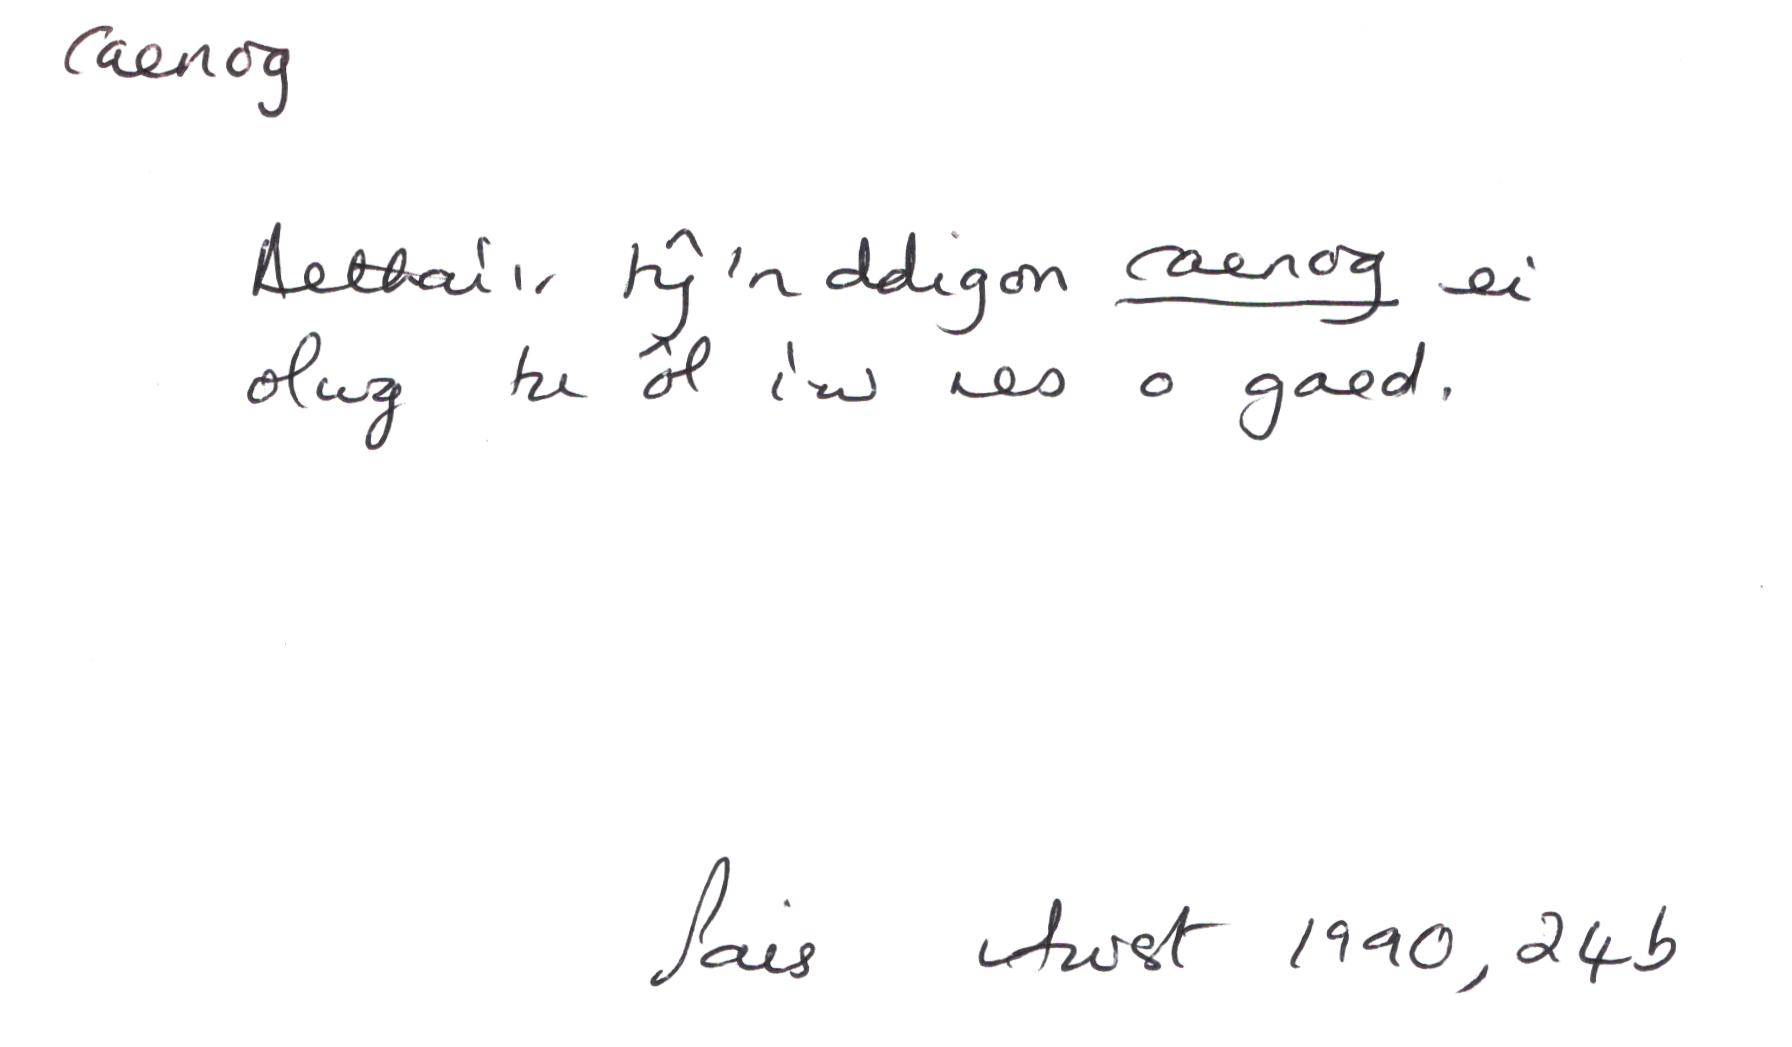 caenog
Aethai'r tŷ'n ddigon caenog ei
olwg tu ôl i'w res o gaed.
Pais Awst 1990, 24b